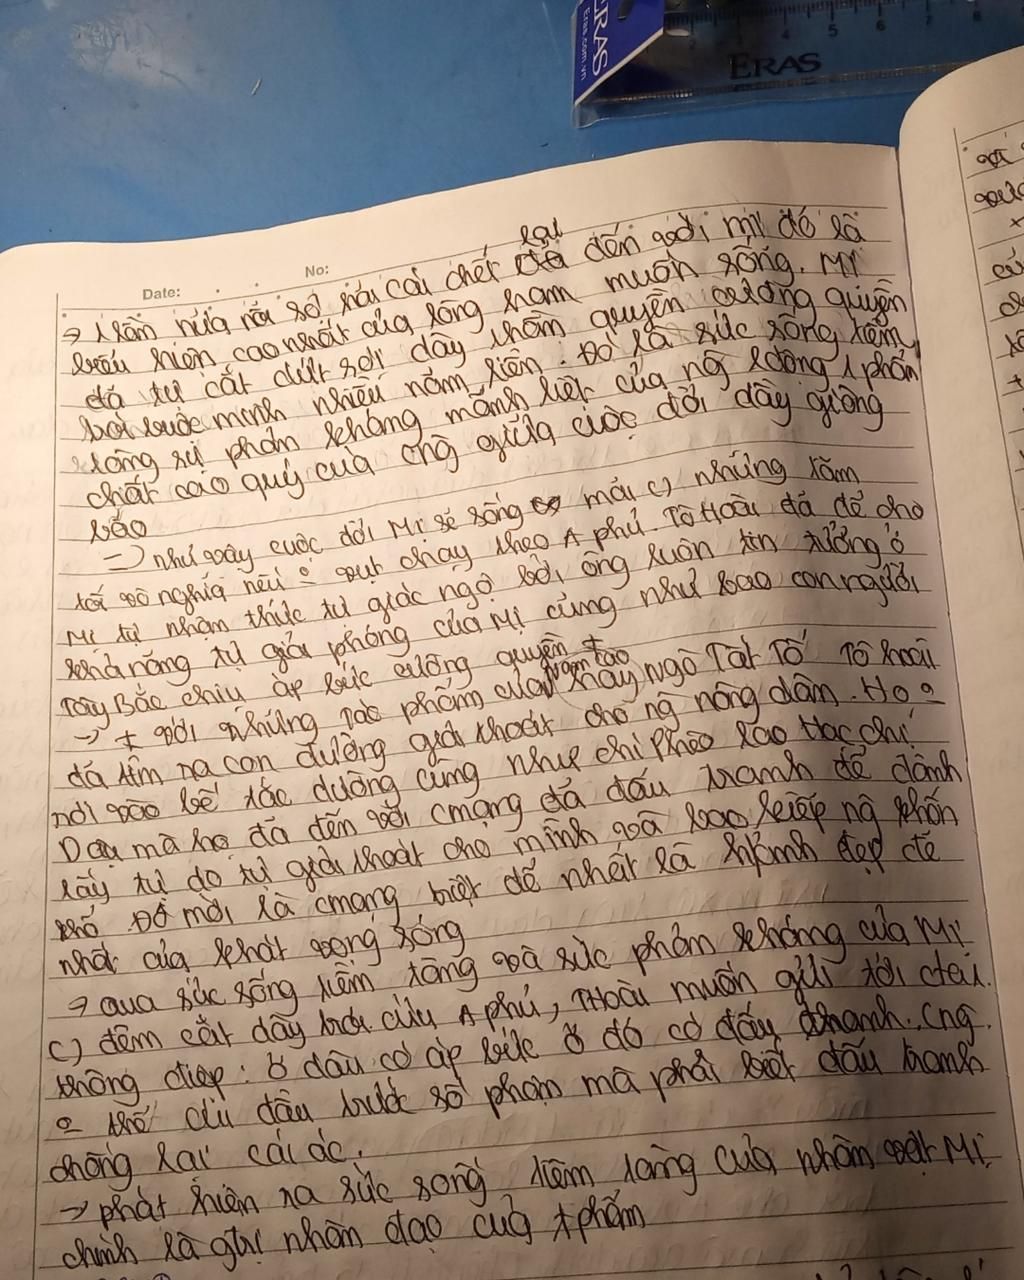 ERAS
Eras.com.vn
2 4 5 6 7 8
ERAS
No:
Date:
lại
→ 1 lần nữa nỗi sợ hãi cái chết đến với Mị đó là
biểu hiện cao nhất của lòng ham muốn sống. Mị
đã tự cắt dứt sợi dây thần quyền cường quyền
trói buộc mình nhiều năm liền. Đó là sức sống tiềm
tàng sự phản kháng mãnh liệt của ng lđộng 1 phẩm
chất cao quý của cng giữa cuộc đời đầy giông
bão
=> như vậy cuộc đời Mị sẽ sống mãi những tăm
tối vô nghĩa nếu o vụt chạy theo A phủ. Tô Hoài đã để cho
Mị tự nhận thức tự giác ngộ bởi ông luôn tin tưởng ở
khả năng tự giải phóng của Mị cũng như bao con người
Tây Bắc chịu áp bức cường quyền
→ ≠ với những tác phẩm của Nam Cao hay Ngô Tất Tố Tô Hoài
đã tìm ra con đường giải thoát cho ng nông dân. Họ o
rơi vào bế tắc đường cùng như chí Phèo lão Hạc chị
Dậu mà họ đã đến với cmạng đã đấu tranh để dành
lấy tự do tự giải thoát cho mình và bao kiếp ng khốn
khổ. Đó mới là cmạng biệt để nhất là hình đẹp đẽ
nhất của khát vọng sống
→ qua sức sống tiềm tàng và sức phản kháng của Mị
đêm cắt dây trói cứu A phủ, THoài muốn gửi tới
thông điệp: ở đâu có áp bức ở đó có đấy tranh. Cng
o thể cúi đầu trước số phận mà phải biết đấu tranh
chống lại cái ác.
→ phát hiện ra sức sống tiềm tàng của nhân vật Mị
chính là giá trị nhân đạo của tphẩm